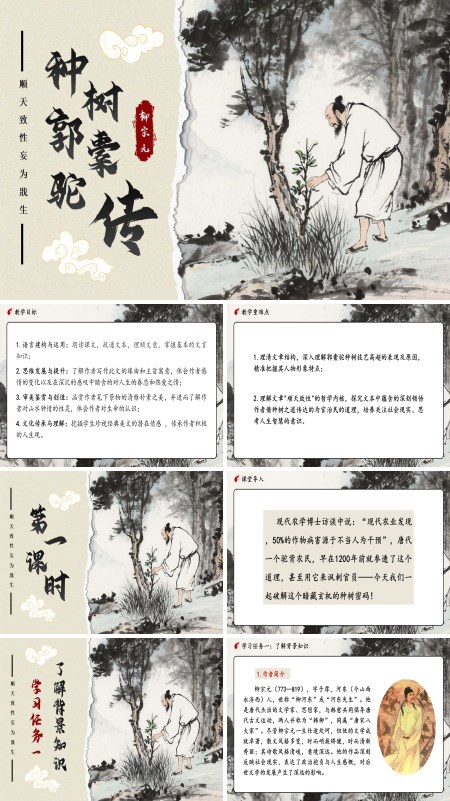 顺天致性妄为戕生
种树
郭橐驼传
柳宗元
教学目标
1. 语言建构与运用：朗读课文，疏通文本，理顺文意，掌握基本的文言
知识；
2. 思维发展与提升：了解作者写作此文的缘由和主旨寓意，体会作者感
情的变化以及在深沉的感叹中暗含的对人生的眷恋和热爱之情；
3. 审美鉴赏与创造：品赏作者笔下景物的清雅朴素之美，并进而了解作
者对山水钟情的性灵，体会作者对生命的认识；
4. 文化传承与理解：挖掘学生珍视经典美文的潜在情感，传承作者积极
的人生观。
教学重难点
1. 理清文章结构，深入理解郭橐驼种树技艺高超的表现及原因，
精准把握其人物形象特点；
2. 理解文章“顺天致性”的哲学内核，探究文本中蕴含的深刻领悟
作者借种树之道传达的为官治民的道理，培养关注社会现实、思
考人生智慧的意识。
顺天致性妄为戕生
第一课时
课堂导入
现代农学博士访谈中说：“现代农业发现
，50%的作物病害源于不当人为干预”，唐代
一个驼背农民，早在1200年前就参透了这个
道理，甚至用它来讽刺官员——今天我们一
起破解这个暗藏玄机的种树密码！
顺天致性妄为戕生
学习任务一
了解背景知识
学习任务一：了解背景知识
1. 作者简介
柳宗元（773—819），字子厚，河东（今山西
永济西）人，世称“柳河东”或“河东先生”。他
是唐代杰出的文学家、思想家，与韩愈共同倡导唐
代古文运动，两人并称为“韩柳”，同属“唐宋八
大家”。尽管柳宗元一生仕途坎坷，但他的文学成
就卓著，散文风格多变，时而明朗犀利，时而清新
秀丽；其诗歌风格清峭，意境深远。他的作品深刻
反映社会现实，表达了政治抱负与人生感慨，对后
世文学的发展产生了深远的影响。